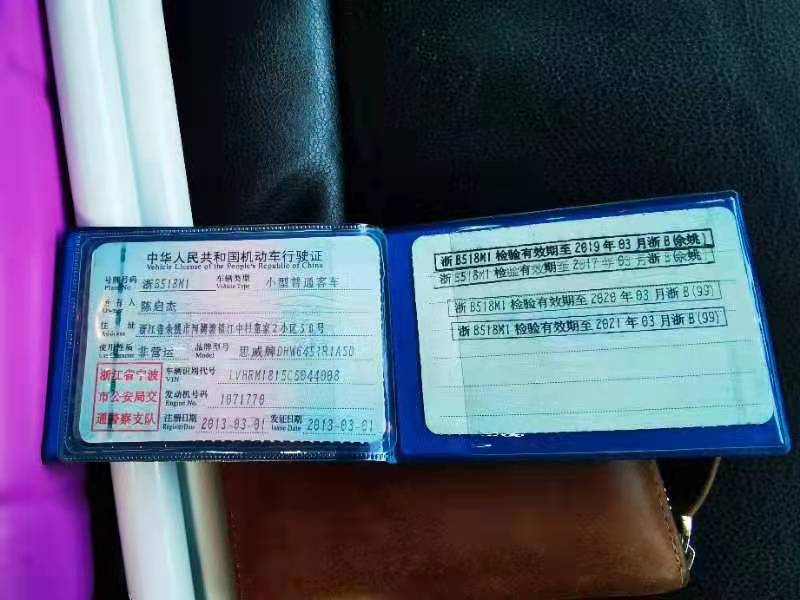 中华人民共和国机动车行驶证
Vehicle License of the People's Republic of China
号牌号码 浙B518M1 车辆类型 小型普通客车
Plate No. Vehicle Type
所有人 陈启杰
Owner
住 址
Address
使用性质 非营运 品牌型号 思威牌DHW6451R1ASD
Use Character Model
浙江省宁波
市公安局交
通警察支队
车辆识别代号 LVHRM1815C5044008
VIN
发动机号码 1071770
Engine No.
注册日期 2013-03-01 发证日期 2013-03-01
Register Date Issue Date
浙B518M1 检验有效期至 2019年 03月 浙B(余姚
浙B518M1 检验有效期至 2017年 03月 浙B(余姚
浙B518M1 检验有效期至 2020年 03月 浙B(99)
浙B518M1 检验有效期至 2021年 03月 浙B(99)